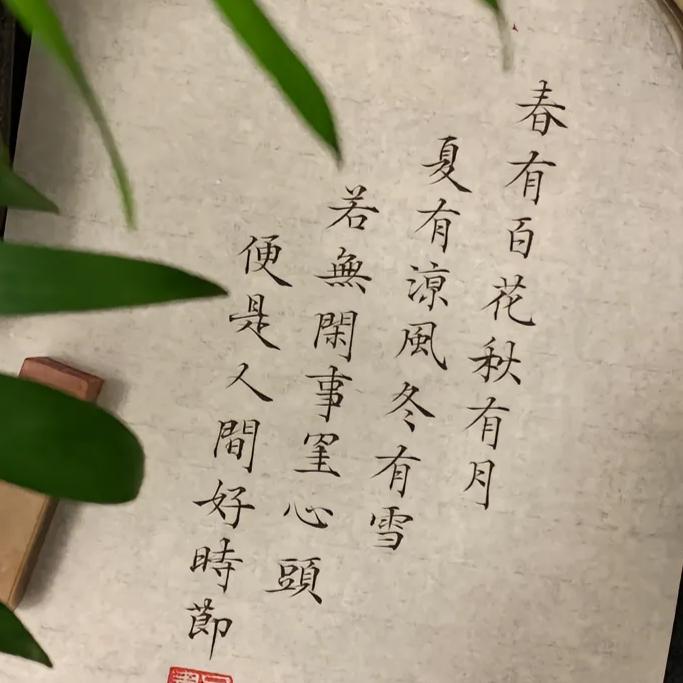 春有百花秋有月
夏有涼風冬有雪
若無閑事罣心頭
便是人間好時節